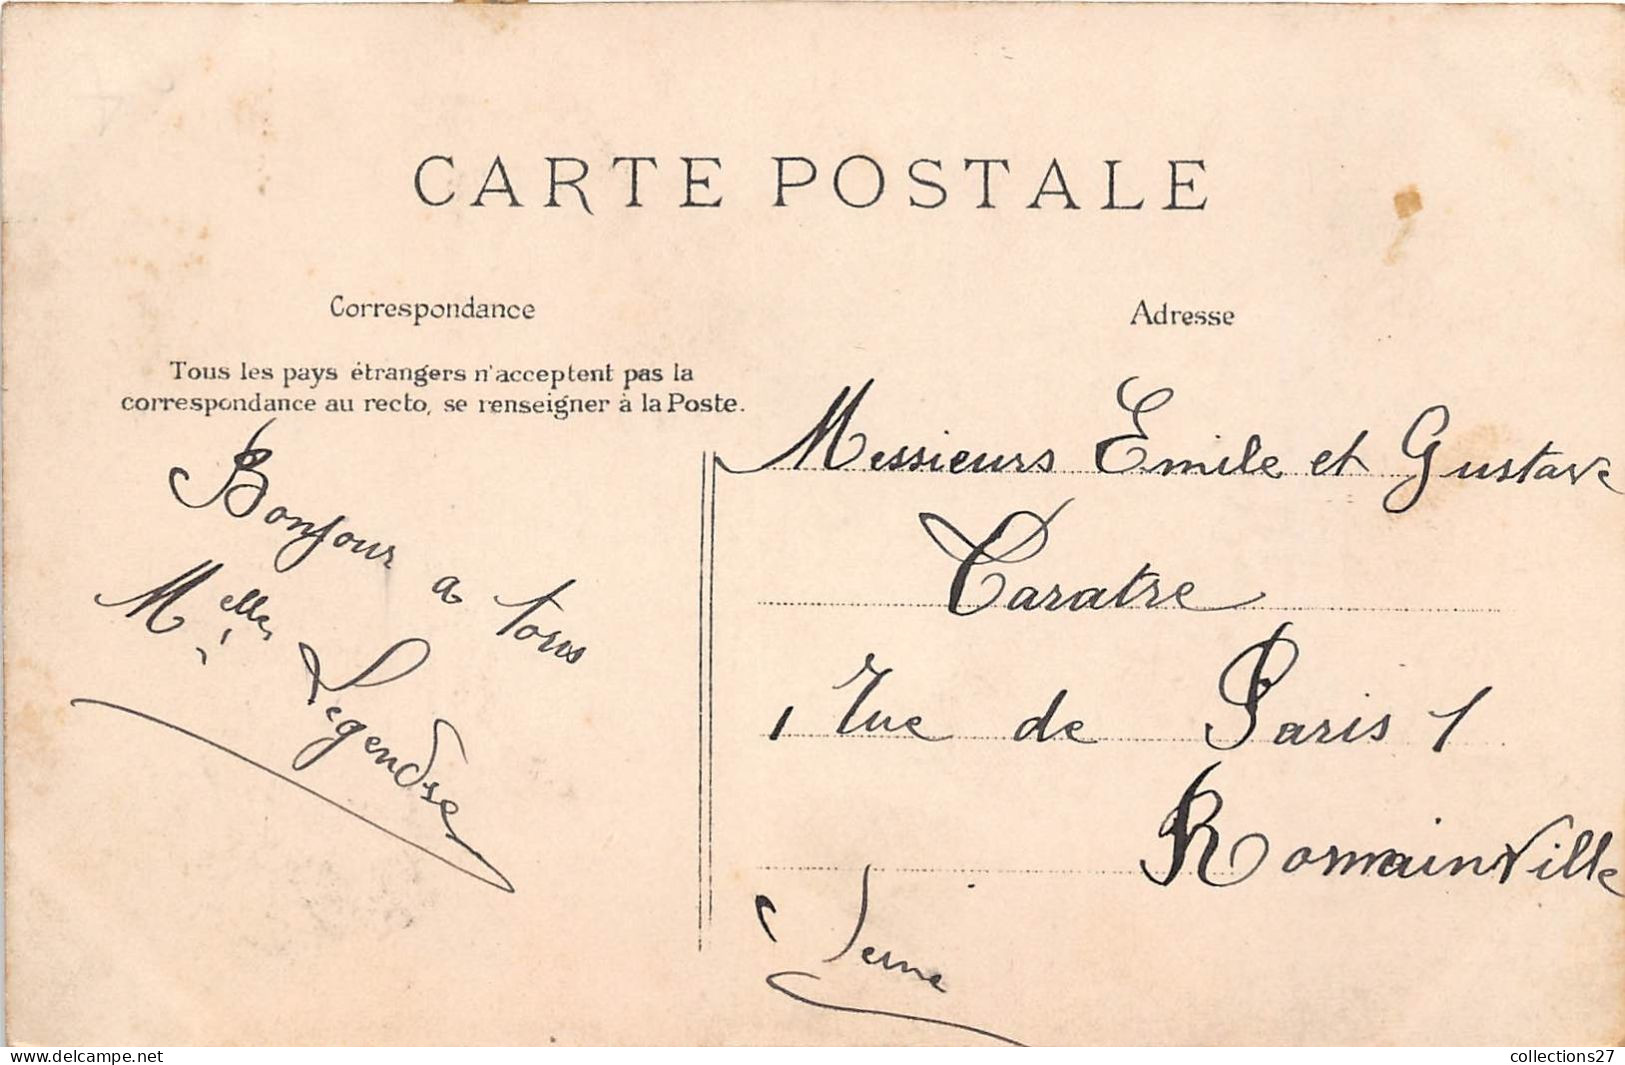 CARTE POSTALE
Correspondance
Tous les pays étrangers n'acceptent pas la
correspondance au recto, se renseigner à la Poste.
Bonjour a tous
M.elle Legendre
Adresse
Messieurs Emile et Gustave
Caratre
1 rue de Paris 1
Romainville
Seine
collections27